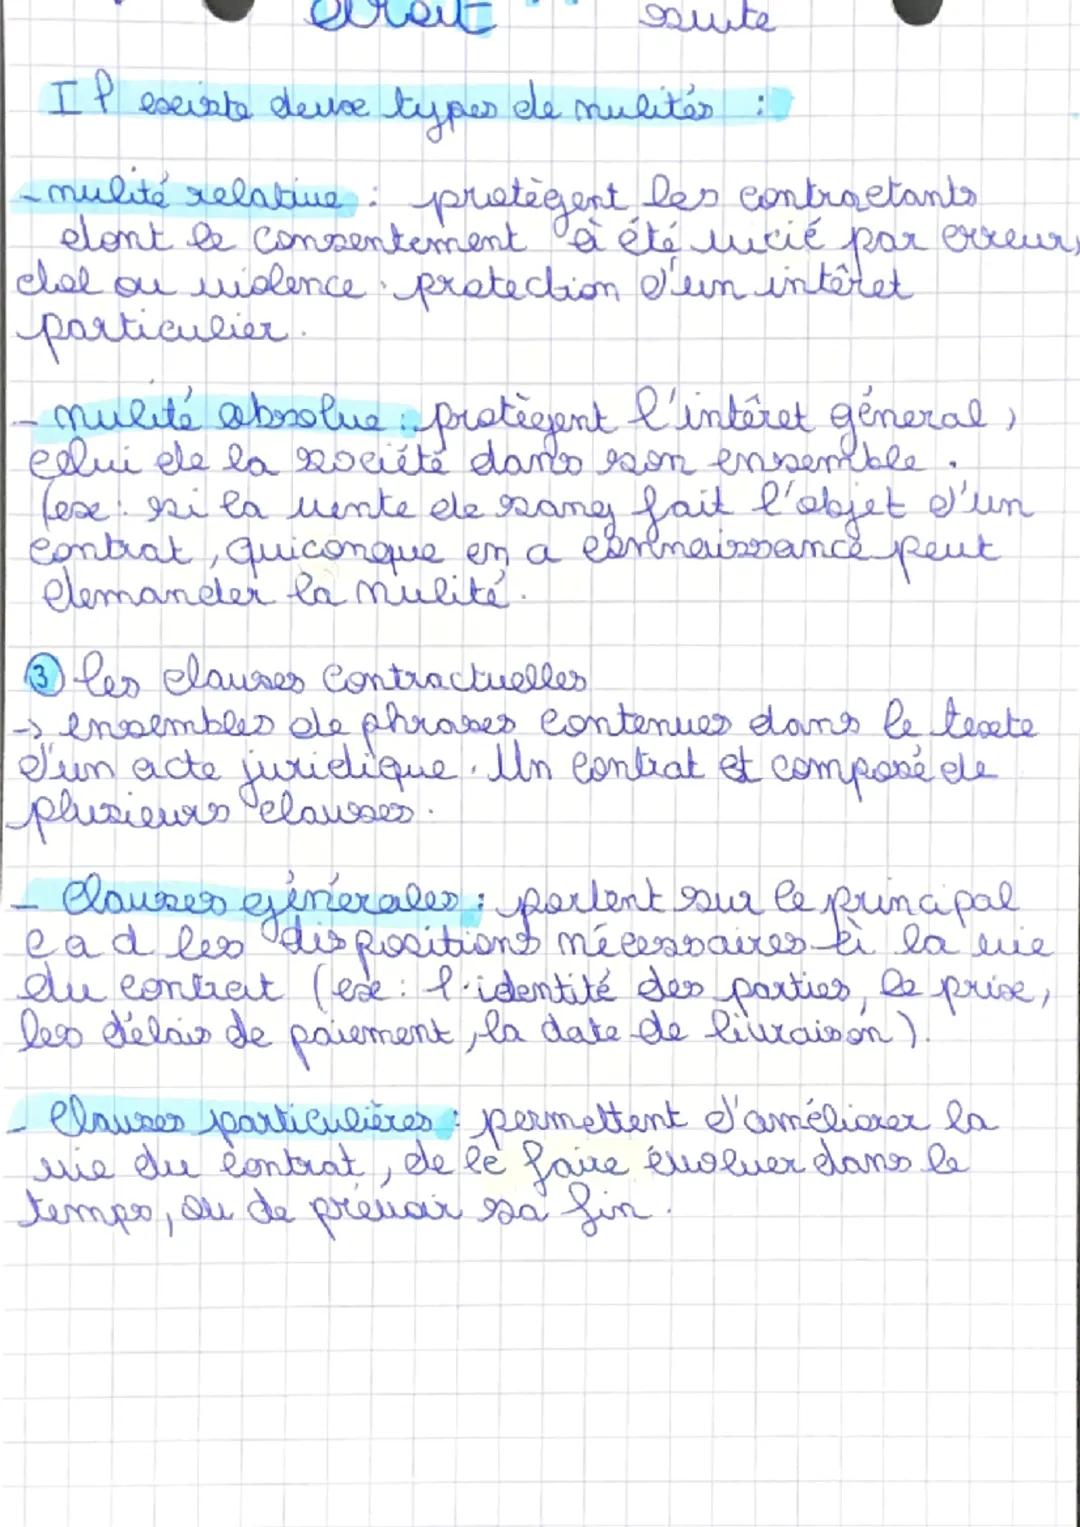 droit suite
Il existe deux types de nulités :
- nulité relative : protègent les contractants
dont le consentement à été vicié par erreur,
dol ou violence : protection d'un intêret
particulier.
- nulité absolue : protègent l'intêret géneral,
celui de la société dans son ensemble.
(ex : si la vente de sang fait l'objet d'un
contrat, quiconque en a connaissance peut
demander la nulité.
3 les clauses contractuelles
→ ensembles de phrases contenues dans le texte
d'un acte juridique. Un contrat et composé de
plusieurs clauses.
- Clauses génerales : portent sur le principal
c a d les dispositions nécessaires à la vie
du contrat (ex : l'identité des parties, le prix,
les délais de paiement, la date de livraison).
- Clauses particulières : permettent d'améliorer la
vie du contrat, de le faire évoluer dans le
temps, ou de prévoir sa fin.